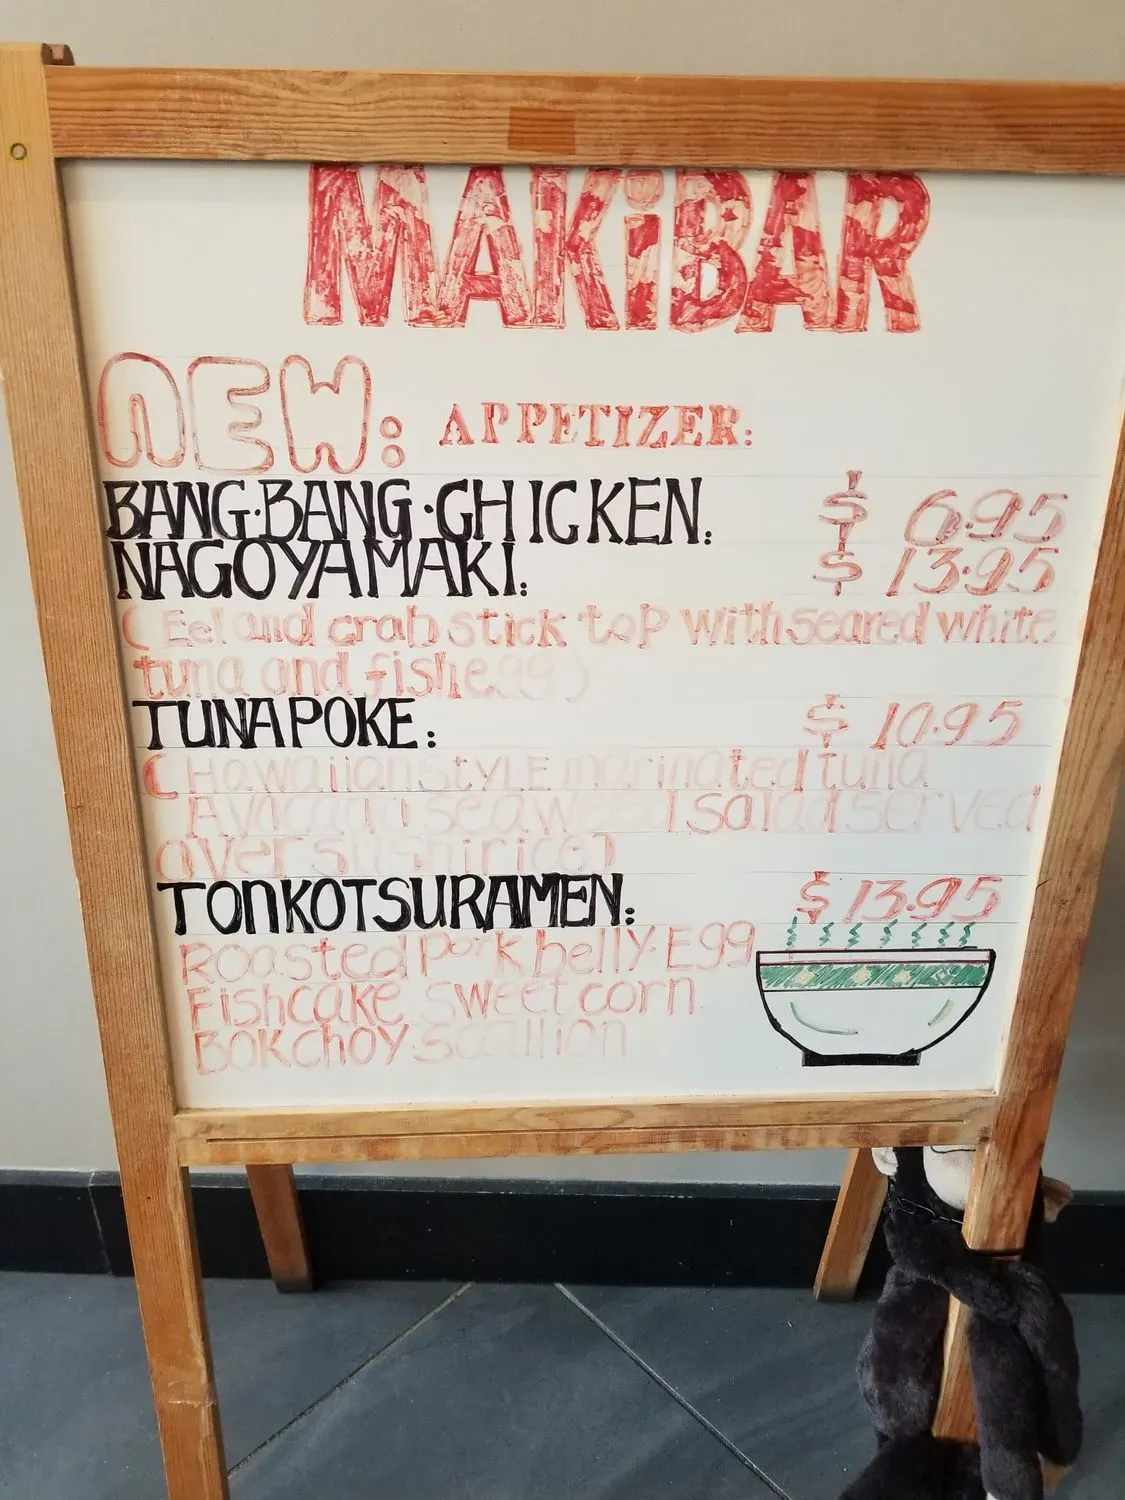 MAKiBAR
NEW: APPETIZER:
BANG·BANG·CHICKEN: $ 6.95
NAGOYA MAKI: $ 13.95
( Eel and crab stick top with seared white
tuna and fish egg )
TUNA POKE: $ 10.95
( Hawaiian STYLE marinated tuna
Avocado seaweed salad served
over sushi rice )
TONKOTSU RAMEN: $ 13.95
Roasted Pork belly. Egg
Fishcake sweet corn
BOKchoy scallion